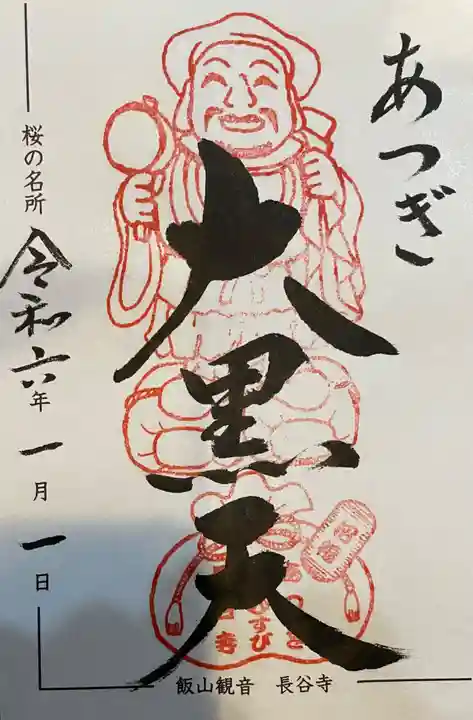 あつぎ
大黒天
桜の名所
令和六年一月一日
飯山観音 長谷寺